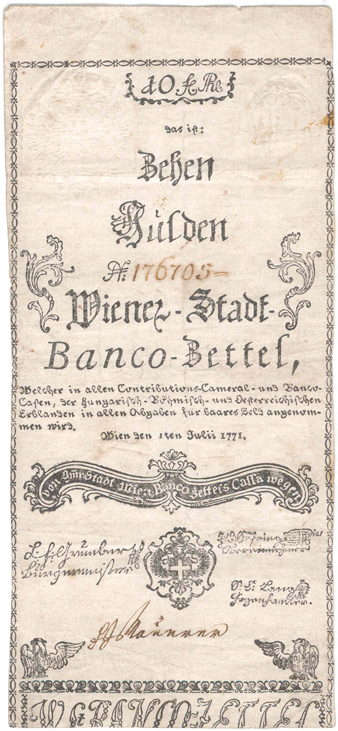 10 fl. Rh.
das ist:
Zehen
Gulden
N: 176705
Wiener-Stadt-
Banco-Zettel,
Welcher in allen Contributions-Cameral- und Banco-
Cassen, der Hungarisch-Böhmisch- und Oesterreichischen
Erblanden in allen Abgaben für baares Geld angenom-
men wird.
Wien den 1ten Julii 1771.
von Stadt Wien Banco Zettels Cassa wegen
Bürgermeister